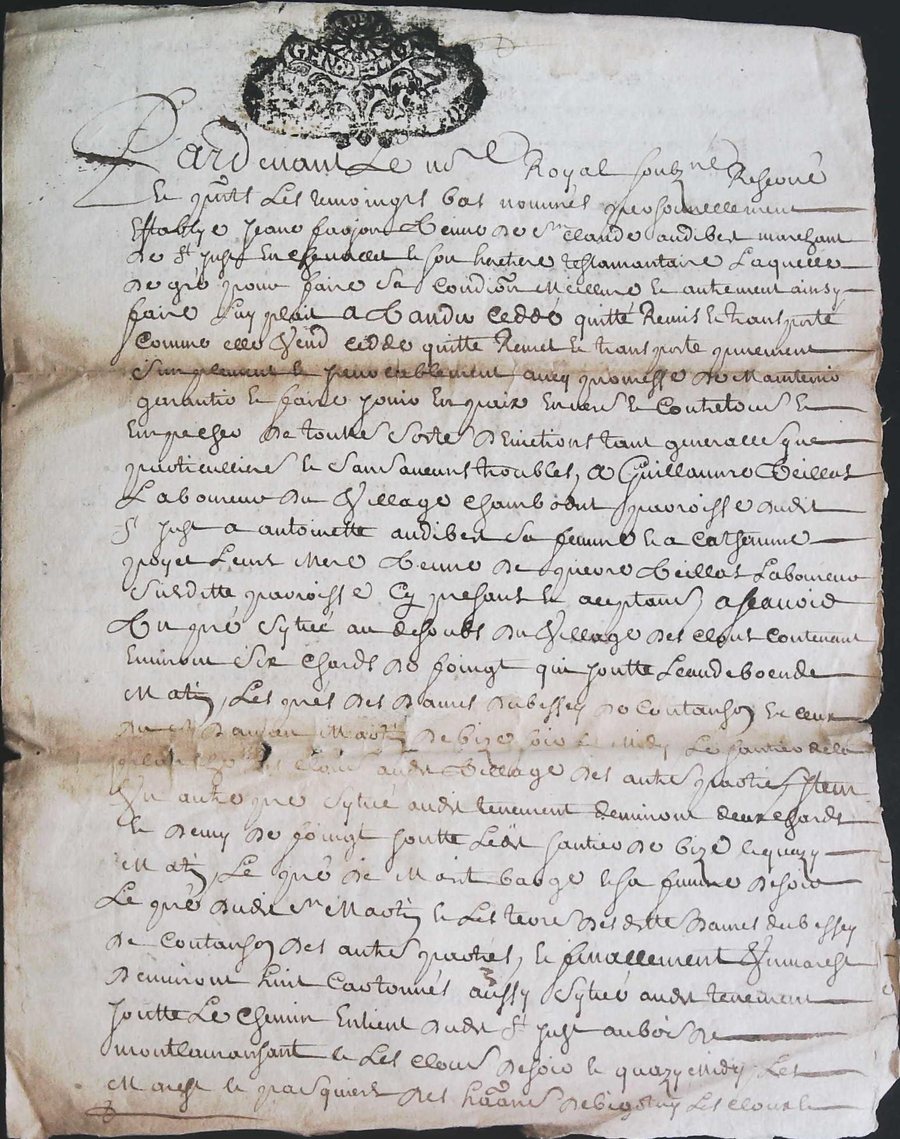 Pardevant Le no.re Royal soubz.né Reservé
Et pn̄ts Les temoingts bas nommés personnellement
Establye Jeane farjon Vefve de S.r claude audibert marchant
De S.t Just son heretiere testamantaire Laquelle
De gré pour faire sa condōn Meilleure et autrement ainsy
faire Luy plait a Vandu ceddé quitté Remis et transporté
Comme elle Vend cedde quitte Remet et transporte purement
Simplement et perpetuellement avecq promesse de Maintenir
garantir et faire jouir En paix Envers et Contre tous et
Empecher De toutes sortes D'evictions tant generalles que
particullieres et sans aucuns troubles, a Guillaume Teillot
Laboureur du Village Chambodut parroisse dudit
S.t Just a antoinette audibert sa femme et a Catherinne
proyet Leur Mere Vefve De pierre Teillot Laboureur
susditte parroisse Cy presant et aceptans, ascavoir
Un pré sytué au desoubs du Village des clous Contenant
Environt six chards de foingt qui joutte
Matin, Les prés des Dames Dubessey De Coutanson et celuy
du Martin De bize soir et Midy Le santier de
des clous audit Village des autres parties, Item
Un autre pré sytué audit tenement d'environt deux chards
et Demy De foingt joutte Ledit santier De bize et quazy
Matin, Le pré De Mont barge et sa femme De soir
Le pré dudit S.r Martin et Les terres desditte Dames dubessey
De Coutanson Des autres partres, et finallement Un marest
D'environt huit Cartonnés aussy sytué audit tenement
joutte Le chemin Entient dudit S.t Just au bois De
montlamarchant et Les clous De soir et quazy midy, Les
Marest et pasquiers des De bize Les clous et